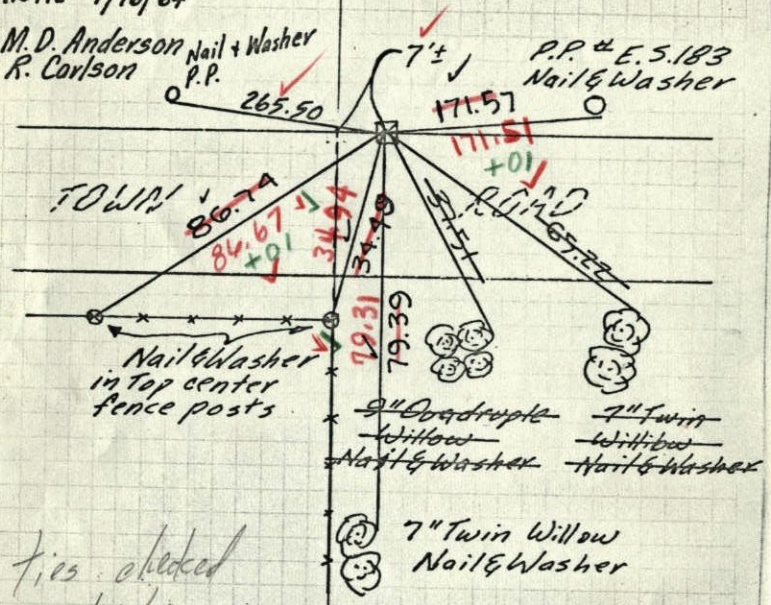 M.D. Anderson
R. Carlson
Nail & Washer
P.P.
265.50
7'±
P.P. # E.S.183
Nail & Washer
171.57
171.51
+01
TOWN ROAD
86.74
86.67
+01
34.94
34.49
37.51
65.22
79.31
79.39
Nail & Washer
in Top center
fence posts
9" Quadruple
Willow
Nail & Washer
7" Twin
Willibw
Nail & Washer
7" Twin Willow
Nail & Washer
ties checked